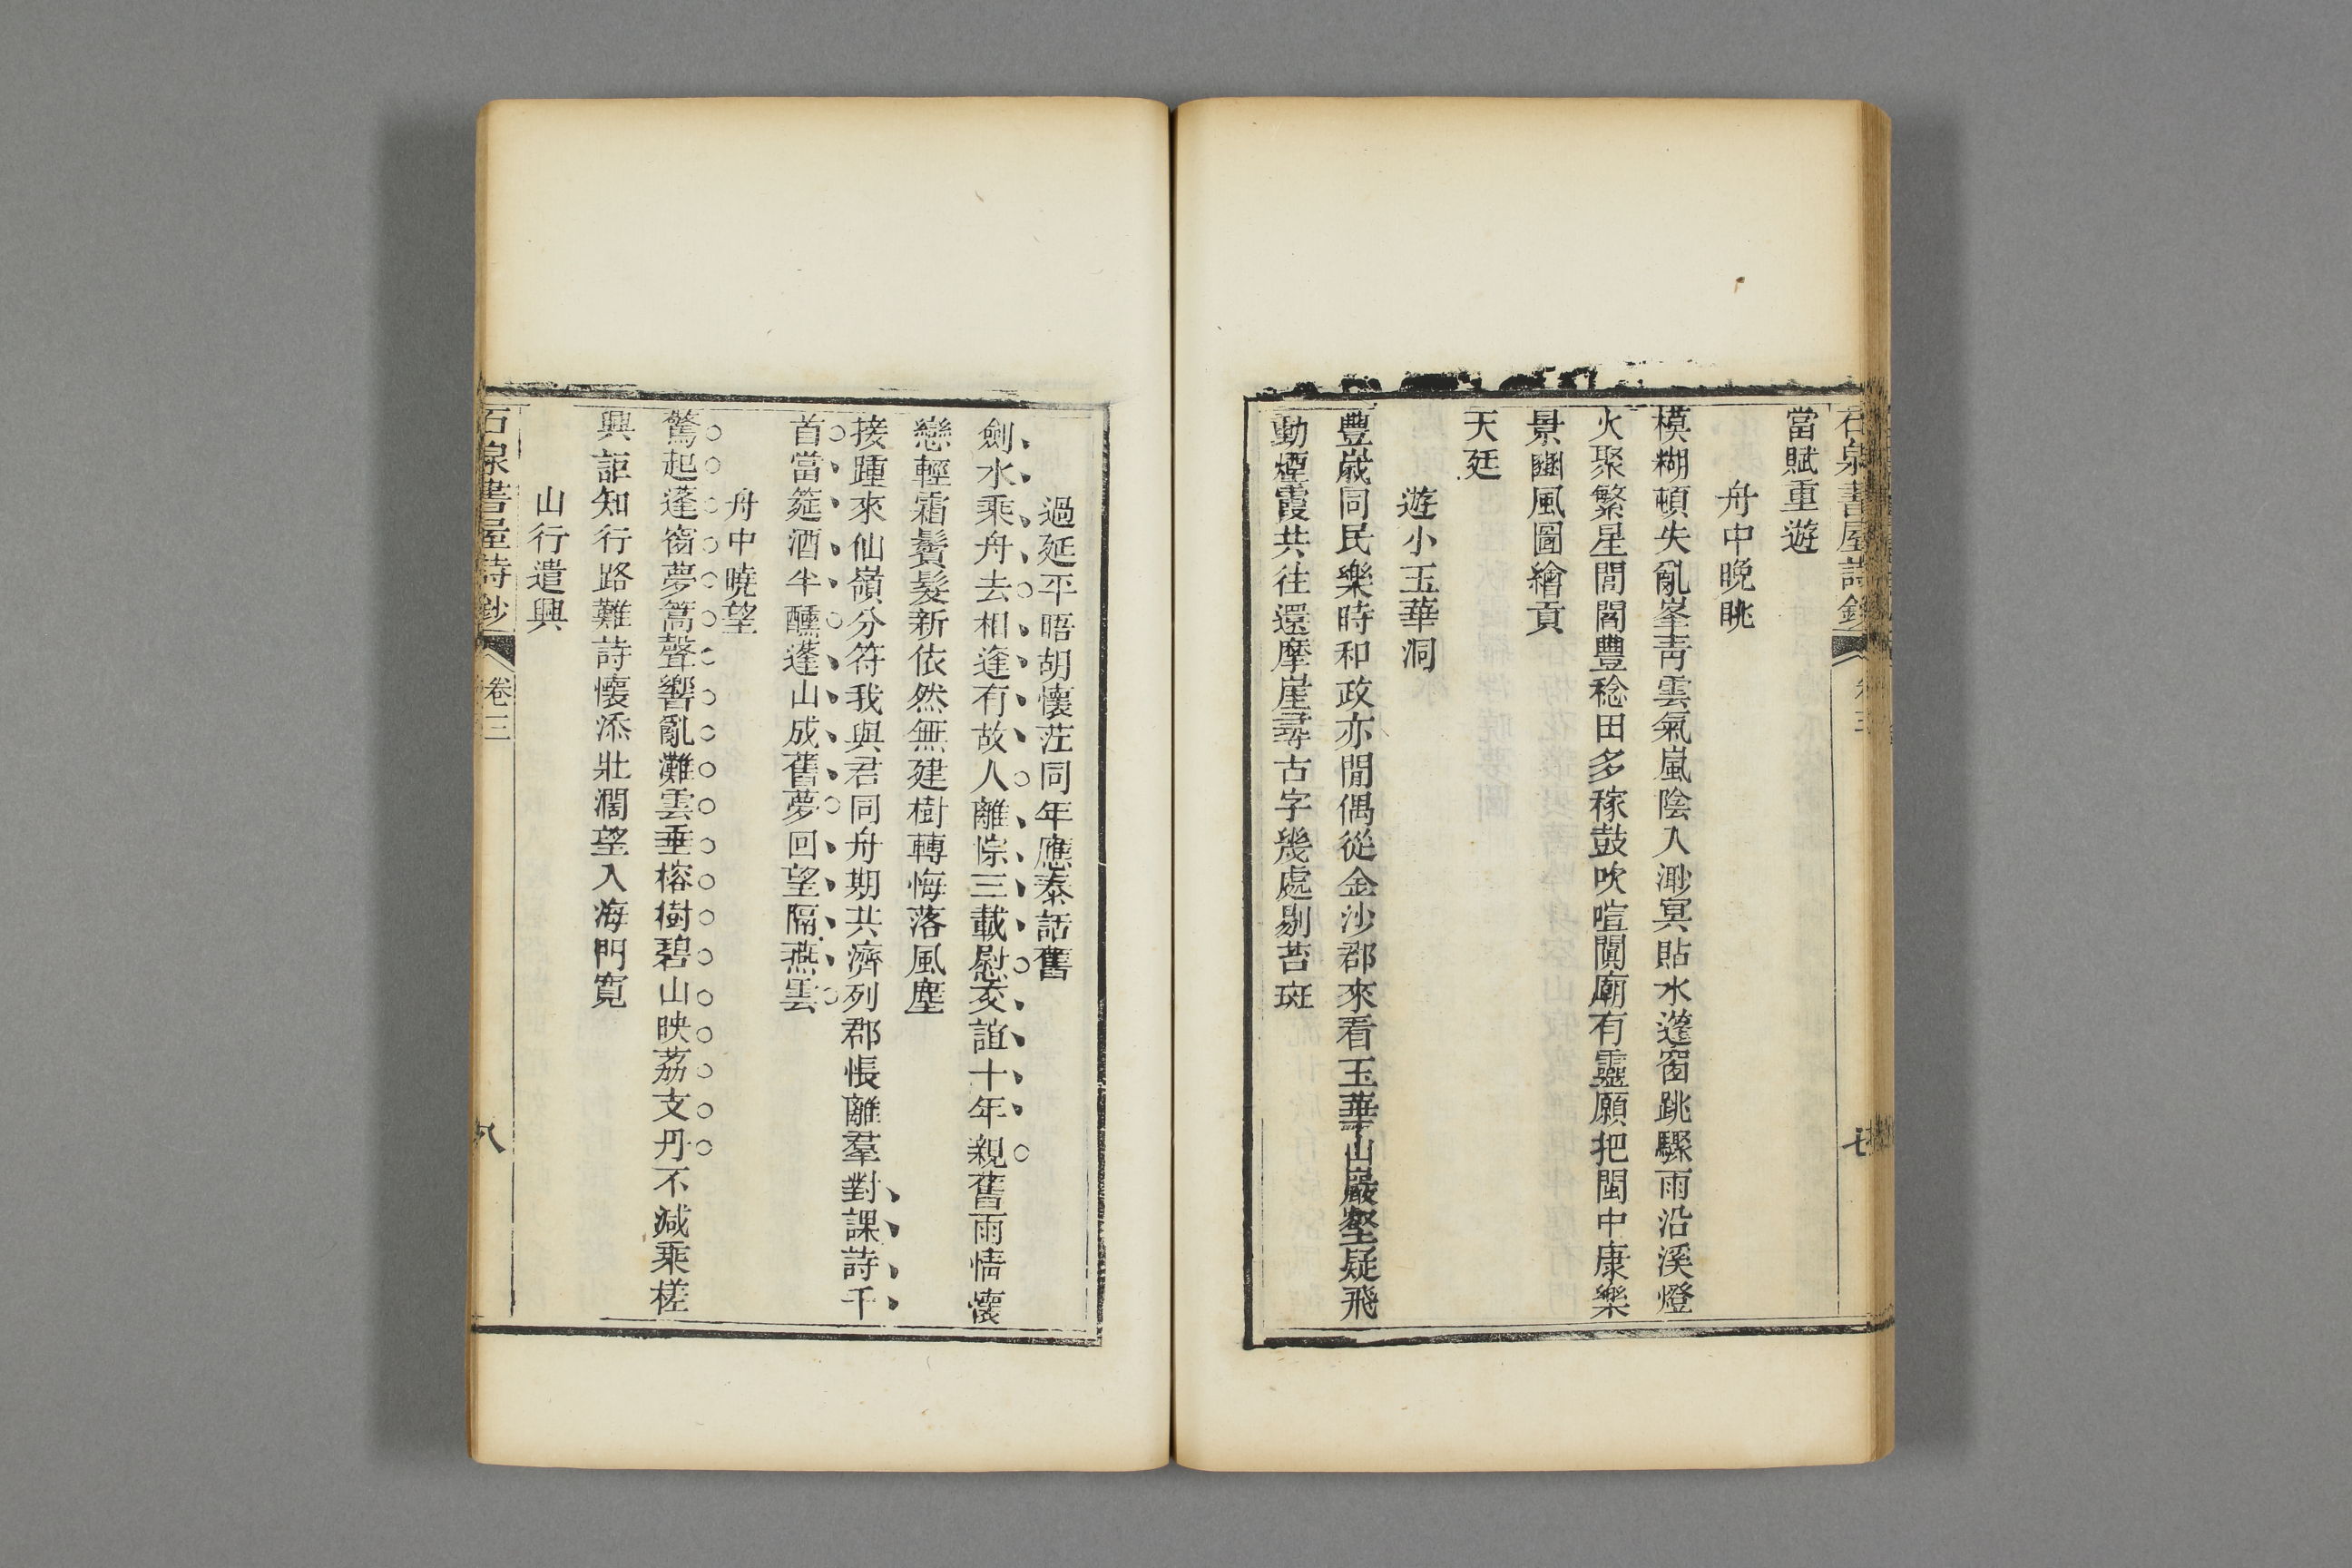 石泉書屋詩鈔 卷三 七
當賦重遊
舟中晚眺
模糊頓失亂峯靑雲氣嵐陰入渺冥貼水蓬窗跳驟雨沿溪燈
火聚繁星閭閻豐稔田多稼鼓吹喧闐廟有靈願把閩中康樂
景豳風圖繪貢
天廷
遊小玉華洞
豐歲同民樂時和政亦閒偶從金沙郡來看玉華山巖壑疑飛
動煙霞共往還摩崖尋古字幾處剔苔斑
過延平晤胡懷茳同年應泰話舊
劍水乘舟去相逢有故人離悰三載慰交誼十年親舊雨情懷
戀輕霜鬢髮新依然無建樹轉悔落風塵
接踵來仙嶺分符我與君同舟期共濟列郡悵離羣對課詩千
首當筵酒半醺蓬山成舊夢回望隔燕雲
舟中曉望
驚起蓬窗夢篙聲響亂灘雲垂榕樹碧山映荔支丹不減乘槎
興詎知行路難詩懷添壯濶望入海門寬
山行遣興
石泉書屋詩鈔 卷三 八